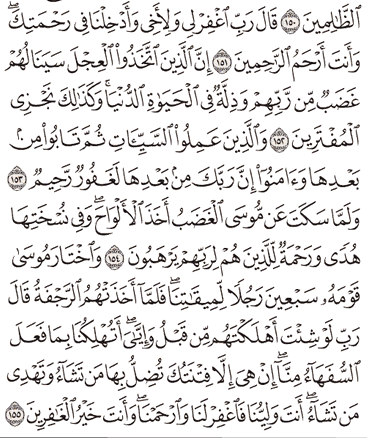 ٱلظَّـٰلِمِينَ ١٥٠ قَالَ رَبِّ ٱغۡفِرۡ لِي وَلِأَخِي وَأَدۡخِلۡنَا فِي رَحۡمَتِكَۖ
وَأَنتَ أَرۡحَمُ ٱلرَّٰحِمِينَ ١٥١ إِنَّ ٱلَّذِينَ ٱتَّخَذُواْ ٱلۡعِجۡلَ سَيَنَالُهُمۡ
غَضَبٞ مِّن رَّبِّهِمۡ وَذِلَّةٞ فِي ٱلۡحَيَوٰةِ ٱلدُّنۡيَاۚ وَكَذَٰلِكَ نَجۡزِي
ٱلۡمُفۡتَرِينَ ١٥٢ وَٱلَّذِينَ عَمِلُواْ ٱلسَّيِّـَٔاتِ ثُمَّ تَابُواْ مِنۢ
بَعۡدِهَا وَءَامَنُوٓاْ إِنَّ رَبَّكَ مِنۢ بَعۡدِهَا لَغَفُورٞ رَّحِيمٞ ١٥٣
وَلَمَّا سَكَتَ عَن مُّوسَى ٱلۡغَضَبُ أَخَذَ ٱلۡأَلۡوَاحَۖ وَفِي نُسۡخَتِهَا
هُدٗى وَرَحۡمَةٞ لِّلَّذِينَ هُمۡ لِرَبِّهِمۡ يَرۡهَبُونَ ١٥٤ وَٱخۡتَارَ مُوسَىٰ
قَوۡمَهُۥ سَبۡعِينَ رَجُلٗا لِّمِيقَٰتِنَاۖ فَلَمَّآ أَخَذَتۡهُمُ ٱلرَّجۡفَةُ قَالَ
رَبِّ لَوۡ شِئۡتَ أَهۡلَكۡتَهُم مِّن قَبۡلُ وَإِيَّٰيَۖ أَتُهۡلِكُنَا بِمَا فَعَلَ
ٱلسُّفَهَآءُ مِنَّآۖ إِنۡ هِيَ إِلَّا فِتۡنَتُكَ تُضِلُّ بِهَا مَن تَشَآءُ وَتَهۡدِي
مَن تَشَآءُۖ أَنتَ وَلِيُّنَا فَٱغۡفِرۡ لَنَا وَٱرۡحَمۡنَاۖ وَأَنتَ خَيۡرُ ٱلۡغَٰفِرِينَ ١٥٥